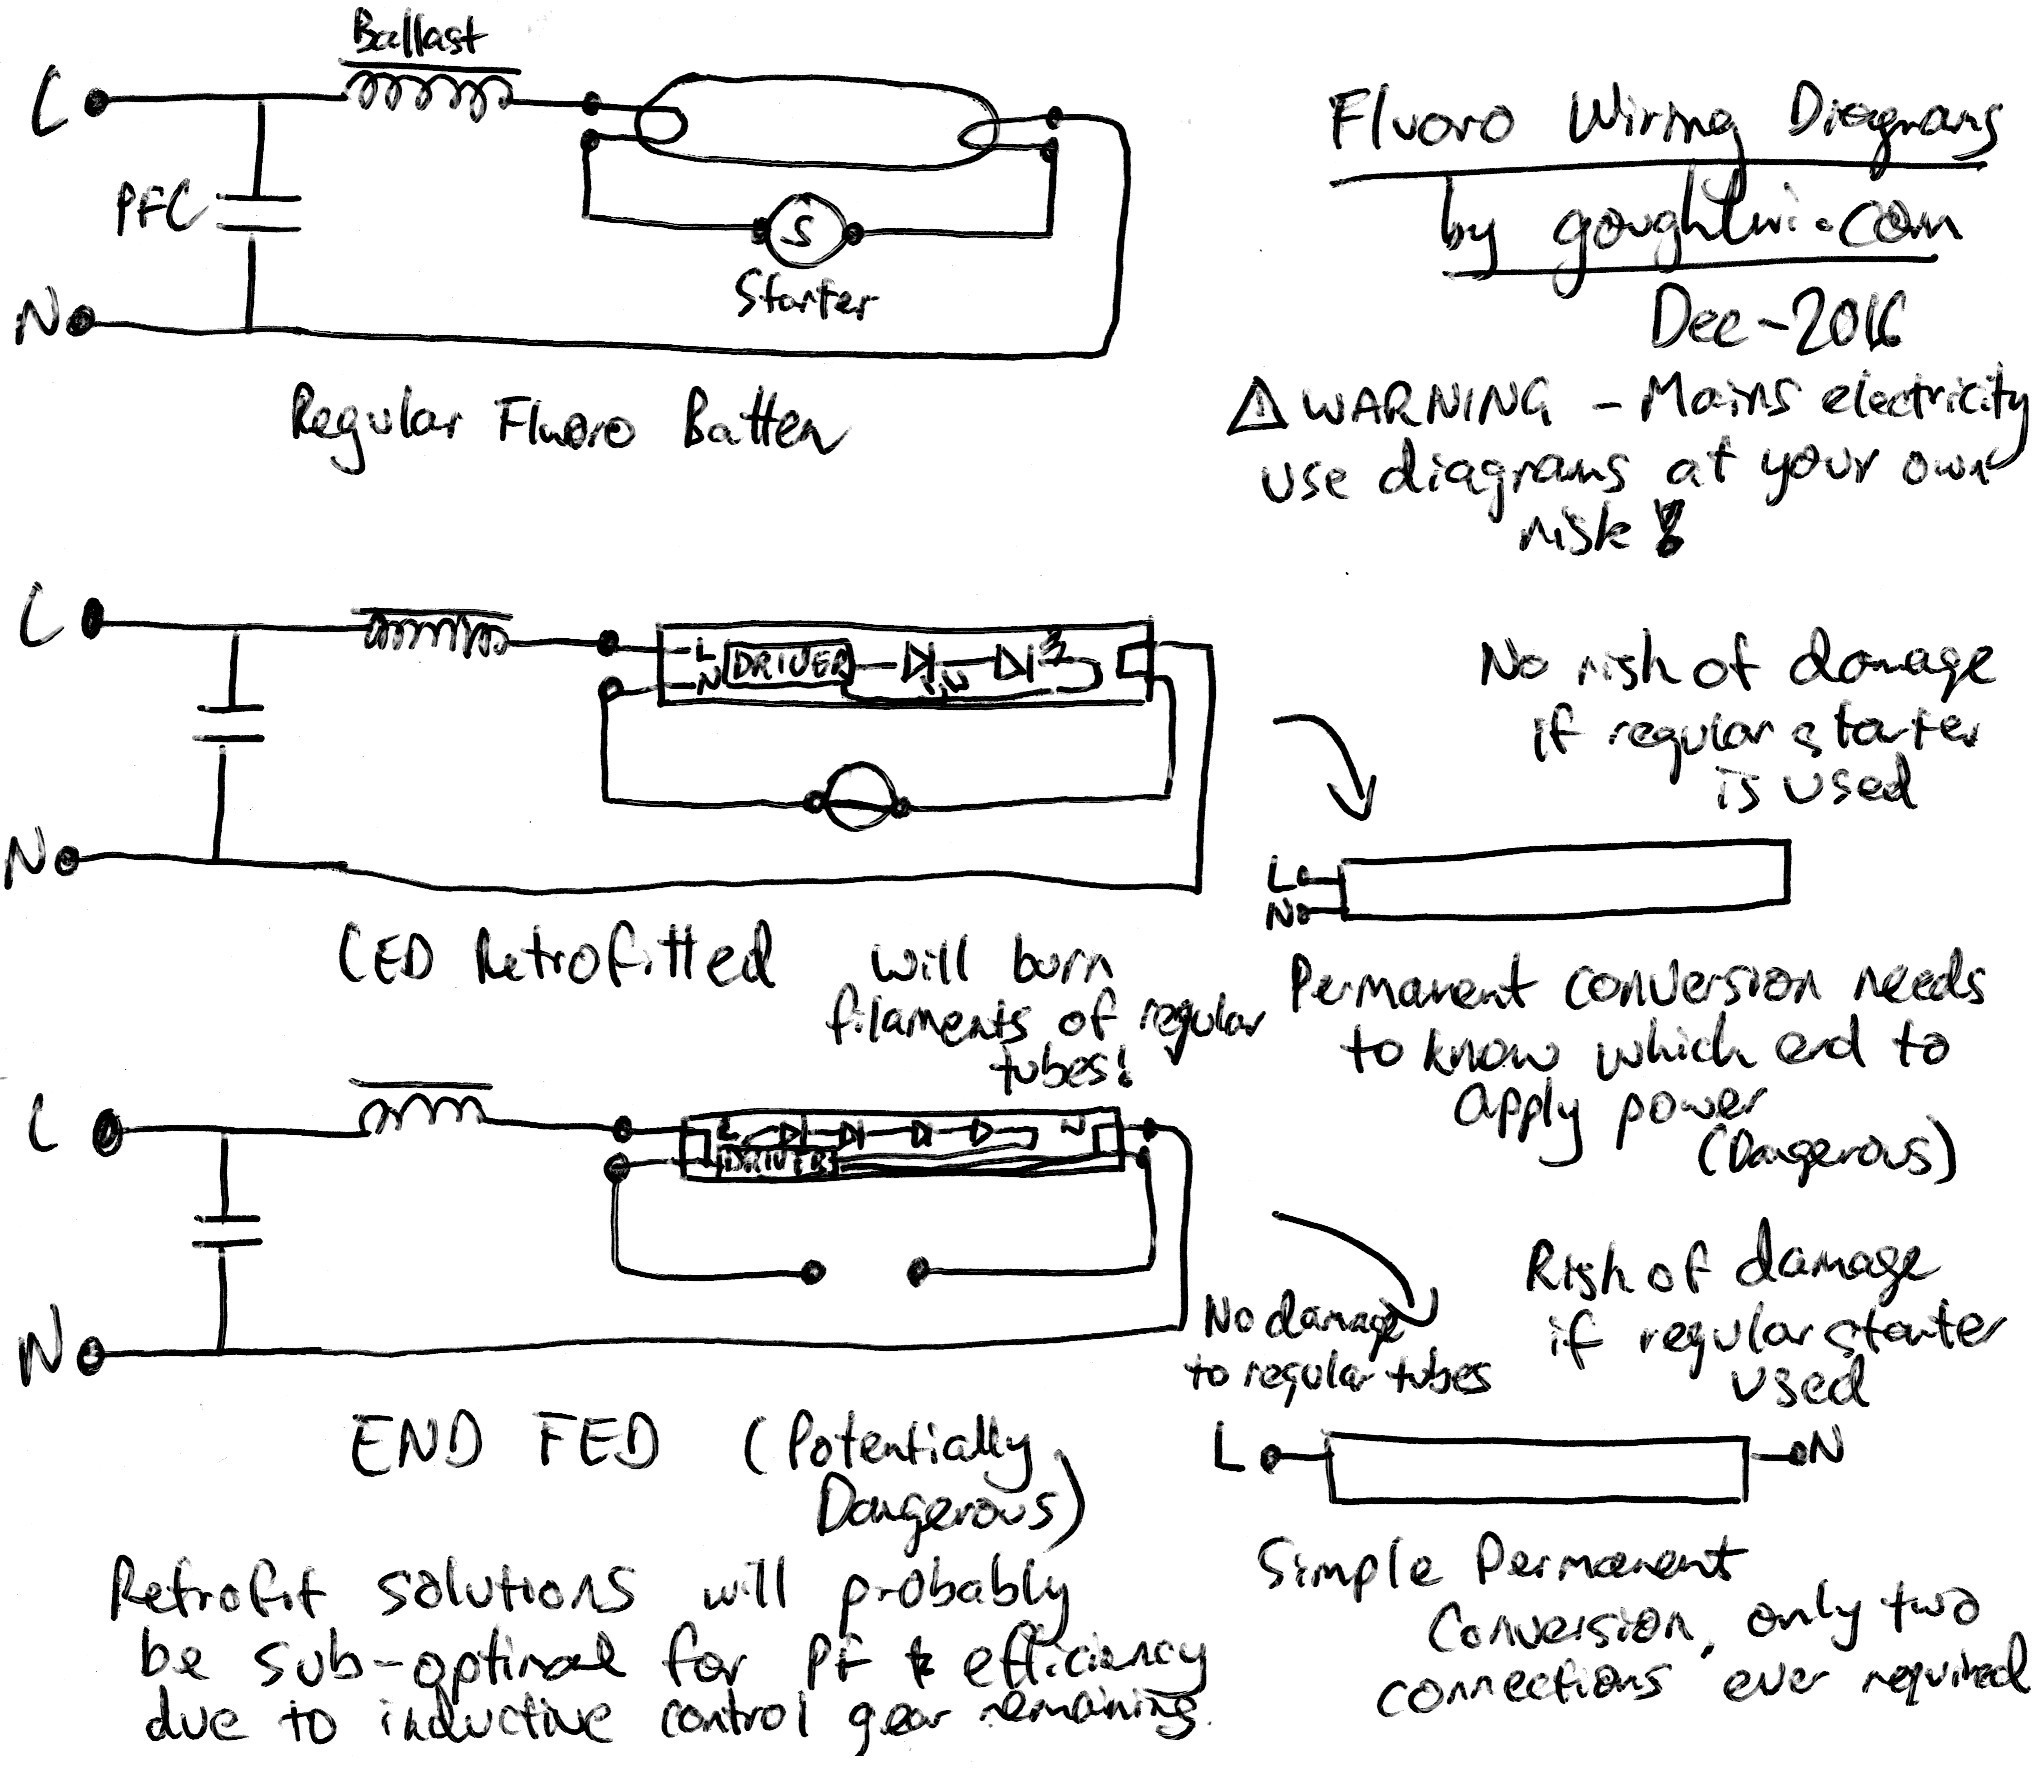 Ballast
L
PFC
S
Starter
N
Regular Fluoro Batten
Fluoro Wiring Diagrams
by goughlui.com
Dec-2016
⚠ WARNING - Mains electricity
use diagrams at your own
risk!
L
L
N
DRIVER
N
No risk of damage
if regular starter
is used
L
N
LED Retrofitted
will burn
filaments of regular
tubes!
Permanent conversion needs
to know which end to
apply power
(Dangerous)
L
L
DRIVER
N
N
No damage
to regular tubes
Risk of damage
if regular starter
used
L
N
END FED (Potentially
Dangerous)
Simple Permanent
Conversion, only two
connections ever required
Retrofit solutions will probably
be sub-optimal for PF & efficiency
due to inductive control gear remaining.